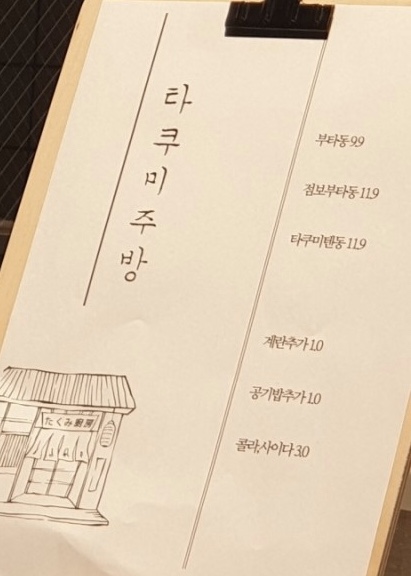 타쿠미주방
부타동 9.9
점보부타동 11.9
타쿠미텐동 11.9
계란추가 1.0
공기밥추가 1.0
콜라,사이다 3.0
たくみ厨房